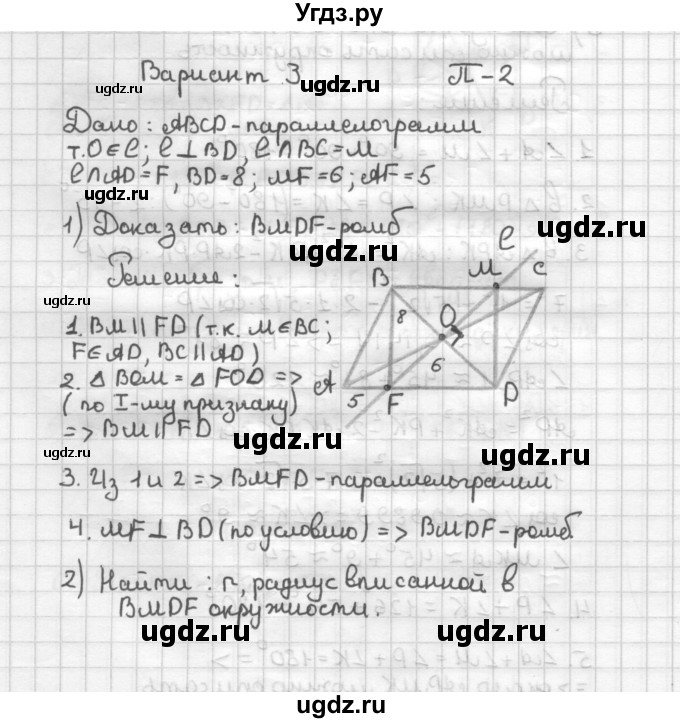 Угдз.ру
Вариант 3 П-2
ugdz.ru ugdz.ru
Дано: ABCD-параллелограмм
ugdz.ru
т.O∈ℓ; ℓ⊥BD, ℓ∩BC=M
ugdz.ru
ℓ∩AD=F, BD=8; MF=6; AF=5
ugdz.ru
1) Доказать: BMDF-ромб
ugdz.ru
Решение:
ℓ
B M C
ugdz.ru
8 O
1. BM∥FD (т.к. M∈BC;
F∈AD, BC∥AD)
6
2. △BOM=△FOD =>
A 5 F D
(по I-му признаку)
ugdz.ru
=> BM∥FD
ugdz.ru ugdz.ru
3. Из 1 и 2 => BMFD-параллелограмм
ugdz.ru
4. MF⊥BD (по условию) => BMDF-ромб
ugdz.ru
2) Найти: r, радиус вписанной в
BMDF окружности.
ugdz.ru ugdz.ru
ugdz.ru
ugdz.ru